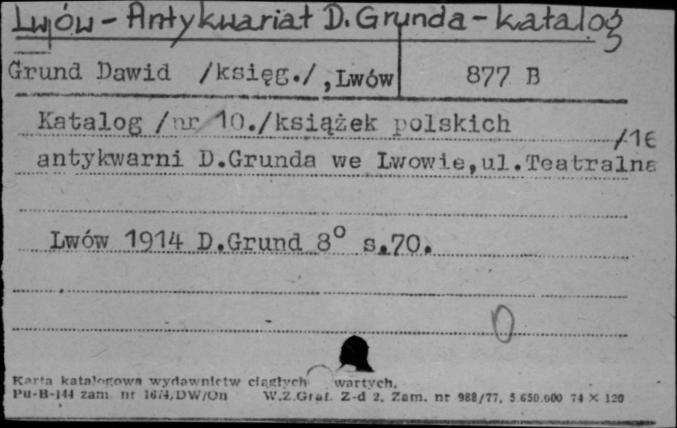 Lwów - Antykwariat D. Grunda - katalog
Grund Dawid /księg./, Lwów 877 B
Katalog /nr 10./książek polskich
/16
antykwarni D.Grunda we Lwowie,ul.Teatralna
Lwów 1914 D.Grund 8° s.70.
Karta katalogowa wydawnictw ciągłych wartych.
Pu-B-144 zam. nr 1674/DW/On W.Z.Graf. Z-d 2. Zam. nr 988/77, 5.650.000 74 × 120